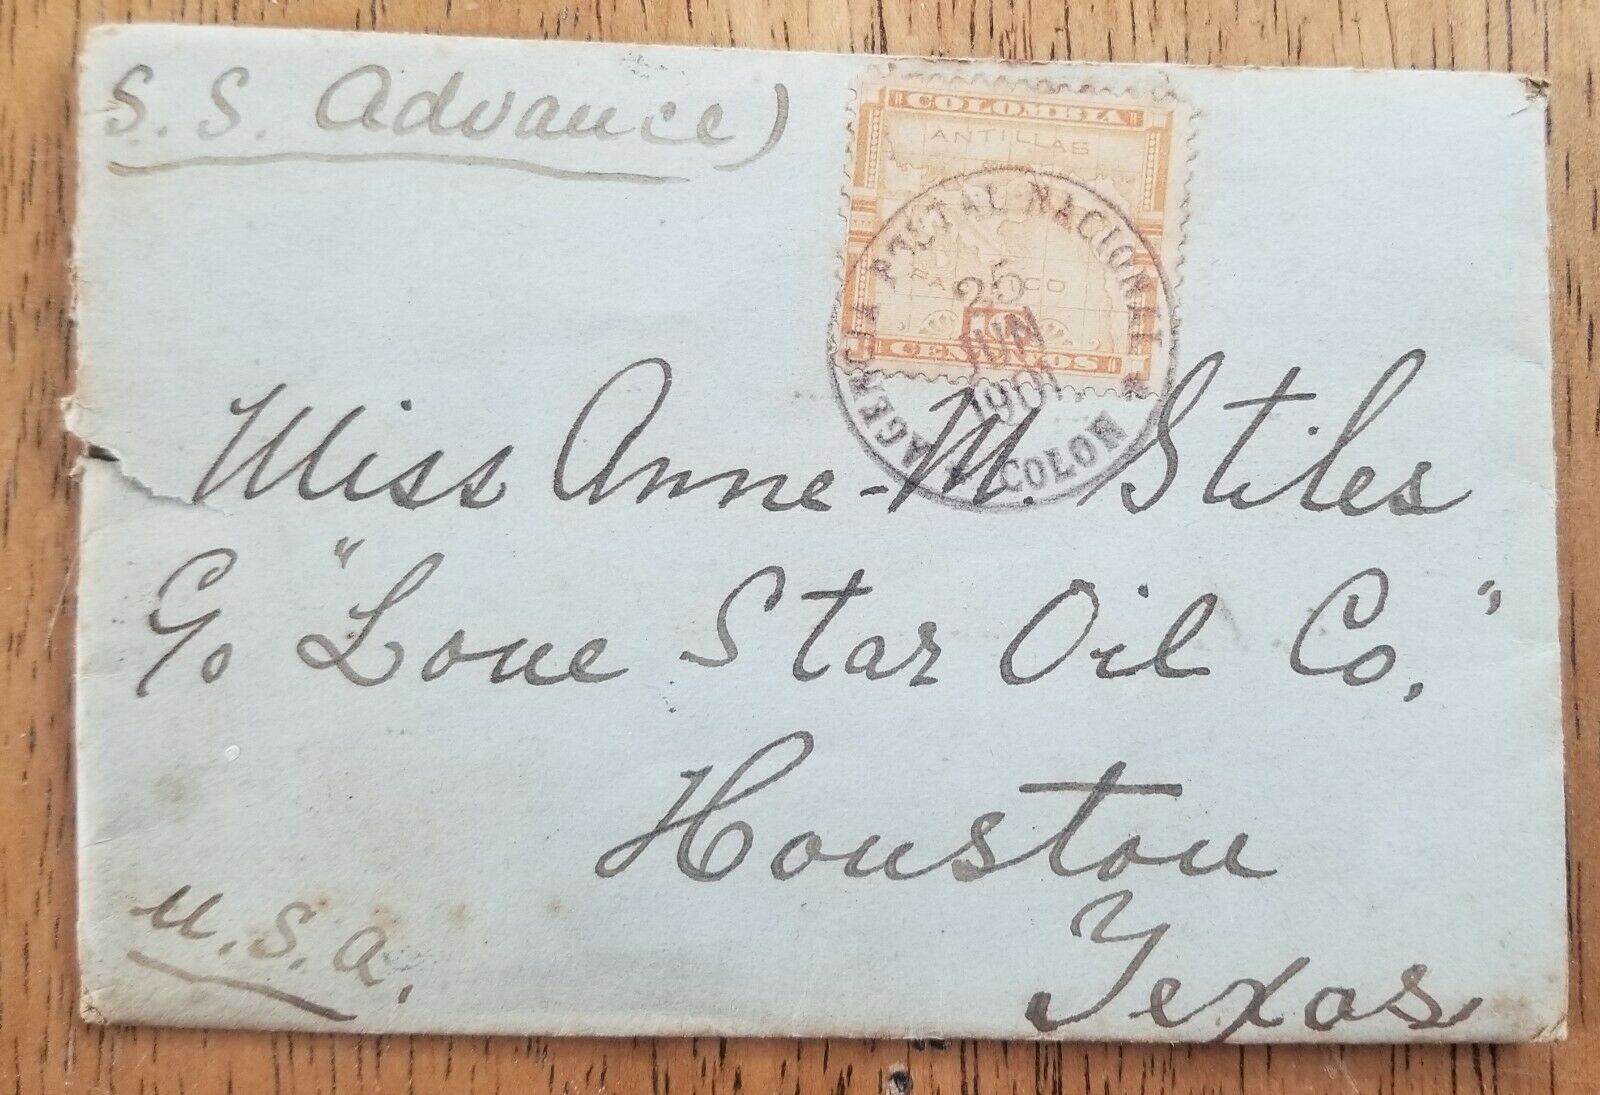 S. S. Advance)
COLOMBIA
ANTILLAS
PACIFICO
10
CENTAVOS
AGENCIA POSTAL NACIONAL
25
JUN
1901
COLON
Miss Anne M. Stiles
C/o "Lone Star Oil Co."
Houston
Texas
U.S.A.